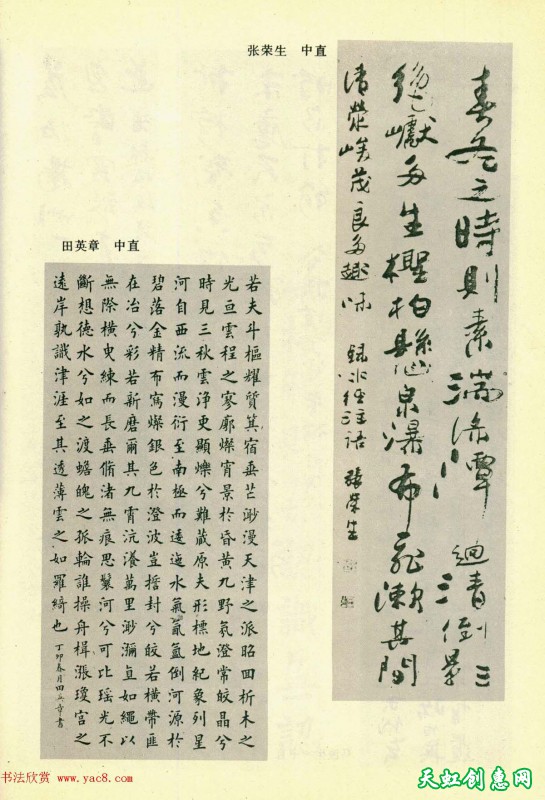 张荣生 中直
春冬之時則素湍綠潭迴清倒影
絕巘多生檉柏懸泉瀑布飛漱其間
清榮峻茂良多趣味 錄水經注語 張榮生
田英章 中直
若夫斗樞耀質箕宿垂芒渺漫天津之派昭回析木之
光亘雲程之寥廓燦宵景於昏黄九野氛澄常皎晶兮
時見三秋雲淨更顯爍兮難藏原夫形標地紀象列星
河自西流而漫衍至南極而遠迤水氣氤氲倒河源於
碧落金精布寫燦銀色於澄波豈捂封兮皎若橫帶匪
在冶兮彩若新磨爾其九霄沆瀁萬里渺瀰直如繩以
無際橫史練而長垂脩渚無痕思鬟河兮可比瑤光不
斷想德水兮如之渡蟾魄之孤輪誰操舟楫漲瓊宫之
遠岸孰識津涯至其透薄雲之如羅綺也 丁卯春月田英章書
书法欣赏 www.yac8.com
天虹创意网